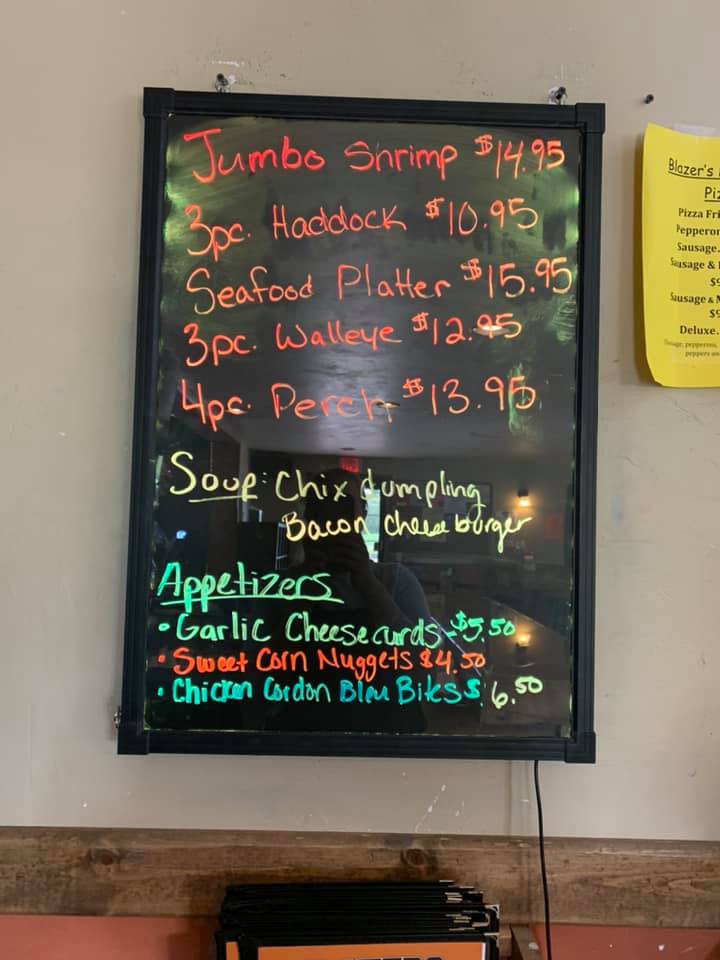 Jumbo Shrimp $14.95
3pc. Haddock $10.95
Seafood Platter $15.95
3pc. Walleye $12.95
4pc. Perch $13.95
Soup: Chix dumpling
Bacon cheeseburger
Appetizers
• Garlic Cheesecurds - $5.50
• Sweet Corn Nuggets $4.50
• Chicken Cordon Bleu Bites $ 6.50
Blazer's
Pizza Fri
Pepperon
Sausage.
Sausage &
$9
Sausage & M
$9
Deluxe.
peppers